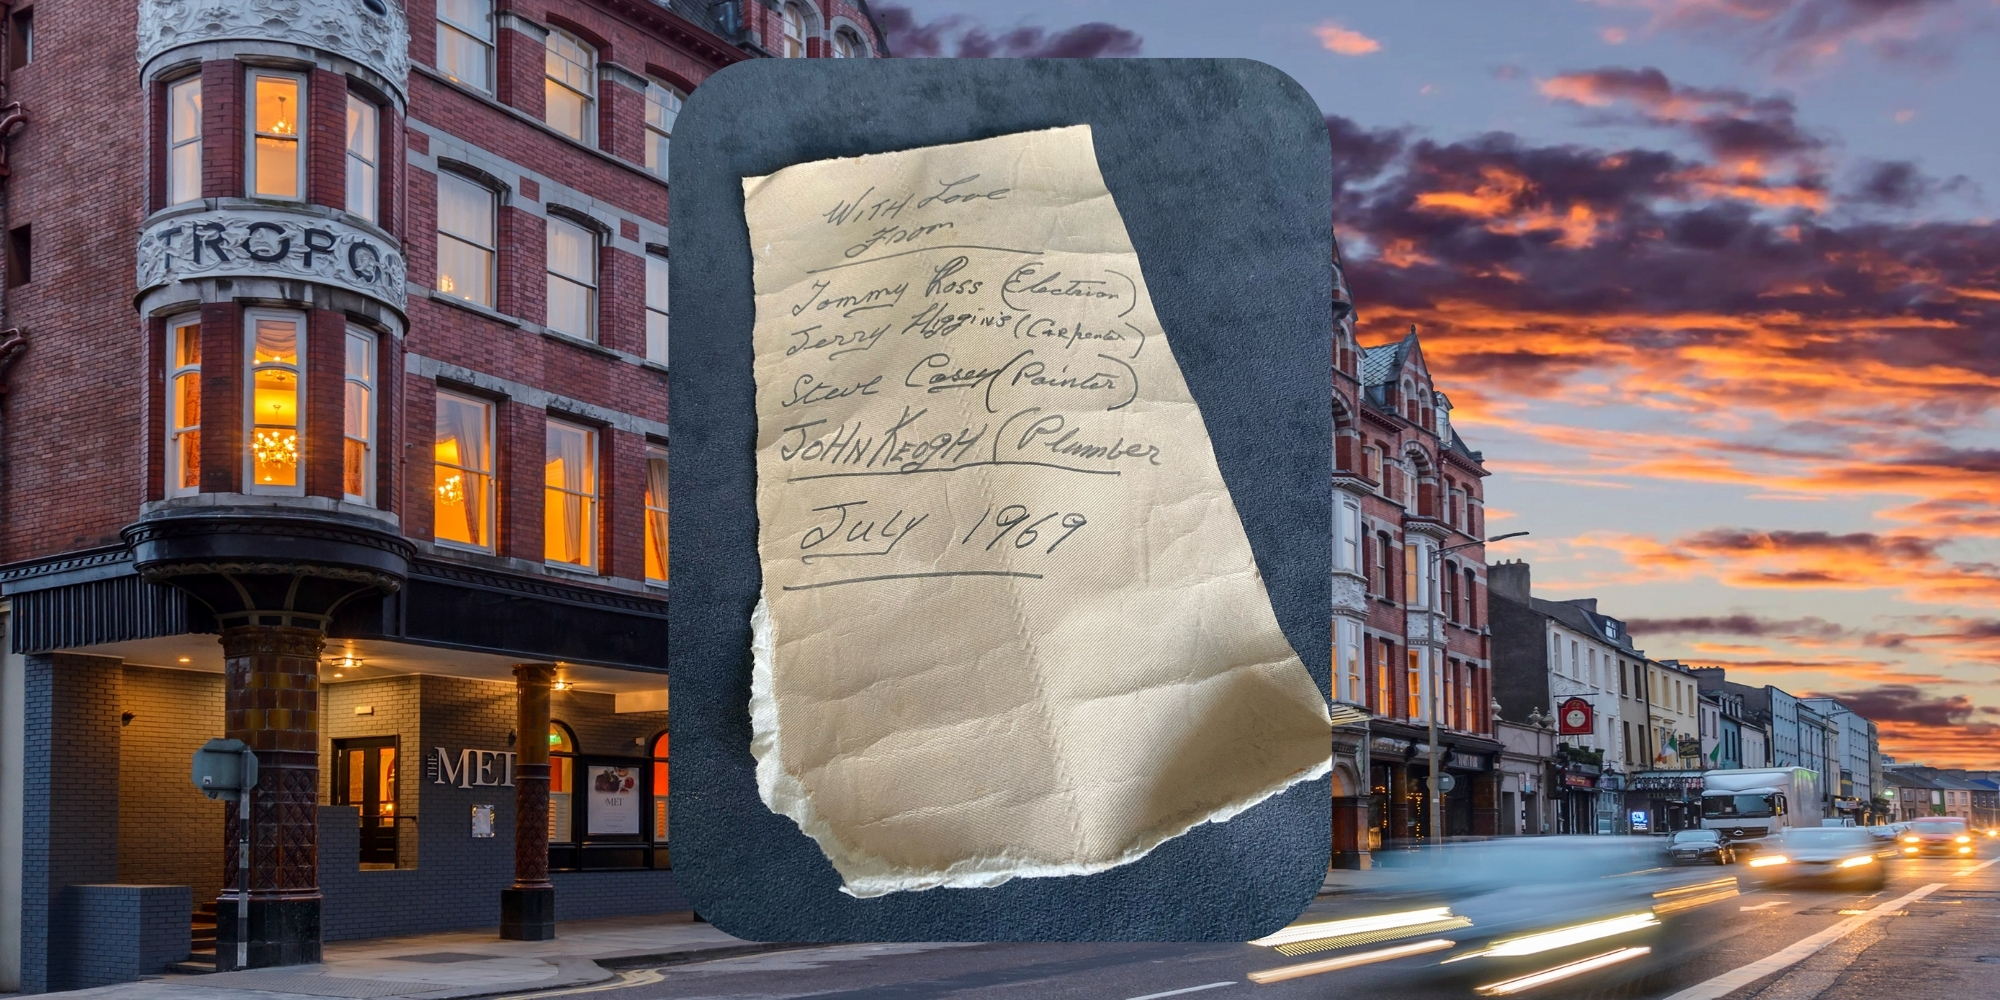 TROPO
THE MET
MET
WITH Love
From
Tommy Ross (Electrion)
Jerry Higgins (Carpenter)
Steve Casey (Painter)
JOHN KEOGH (Plumber
July 1969